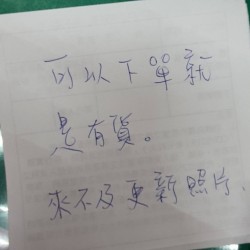 可以下單就
是有貨。
來不及更新照片